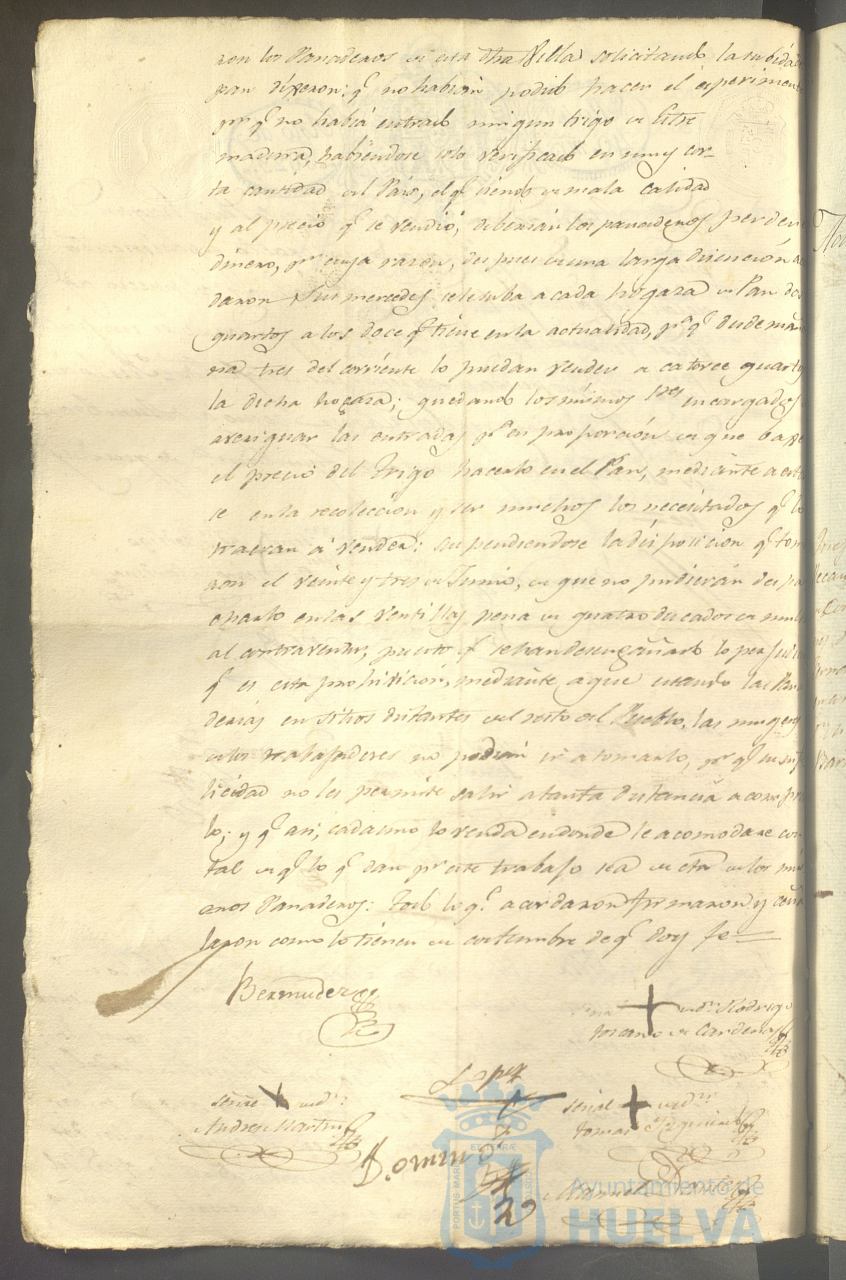 ron los Panaderos de esta dha Villa solicitando la subida de
pan dixeron: q.e no habian podido hacer el experimen
pr. q.e no habia entrado ningun trigo de Estre
madura, habiendose solo verificado en muy cor-
ta cantidad del Pais, el q.e siendo de mala calidad
y al precio q.e se vendió, deberian los panaderos perder
dinero, pr. cuya razon, despues de una larga discucion a
daron Sus mercedes se le suba a cada hogaza de Pan dos
quartos a los doce q.e tiene en la actualidad, pa. q.e desde maña
na tres del corriente lo puedan vender a catorce quartos
la dicha hogaza; quedando los mismos Sres encargados
averiguar las entradas pa. en proporcion de que baxe
el precio del Trigo hacerlo en el Pan, mediante a estar
se en la recoleccion y ser muchos los necesitados q.e lo
traeran á vender: suspendiendose la disposicion q.e toma
ron el veinte y tres de Junio, de que no pudieran despa
charlo en las Ventillas pena de quatro ducados de multa
al contraventor, puesto q.e se han desengañado lo perjudicial
q.e es esta proivicion, mediante a que estando las Pana
derias en sitios distantes del resto del Pueblo, las mugeres
de los trabajadores no podian ir a tomarlo, pr. q.e su
licidad no les permite salir a tanta distancia a compra
lo; y q.e asi, cada uno lo venda en donde le acomodare con
tal de q.e lo q.e dan pr. este trabajo sea de cta. de los mis
mos Panaderos: todo lo q.e acordaron firmaron y señ
laron como lo tienen de costumbre de q.e doy fe=
Bermudez
señal + de dn. Rodrigo
Toscano de Cardenas
Lopez
señal + de dn.
Andres Martin
señal + de dn.
Tomas Izquierdo
Domin
Ayuntamiento de
HUELVA
PORTUS MARIS